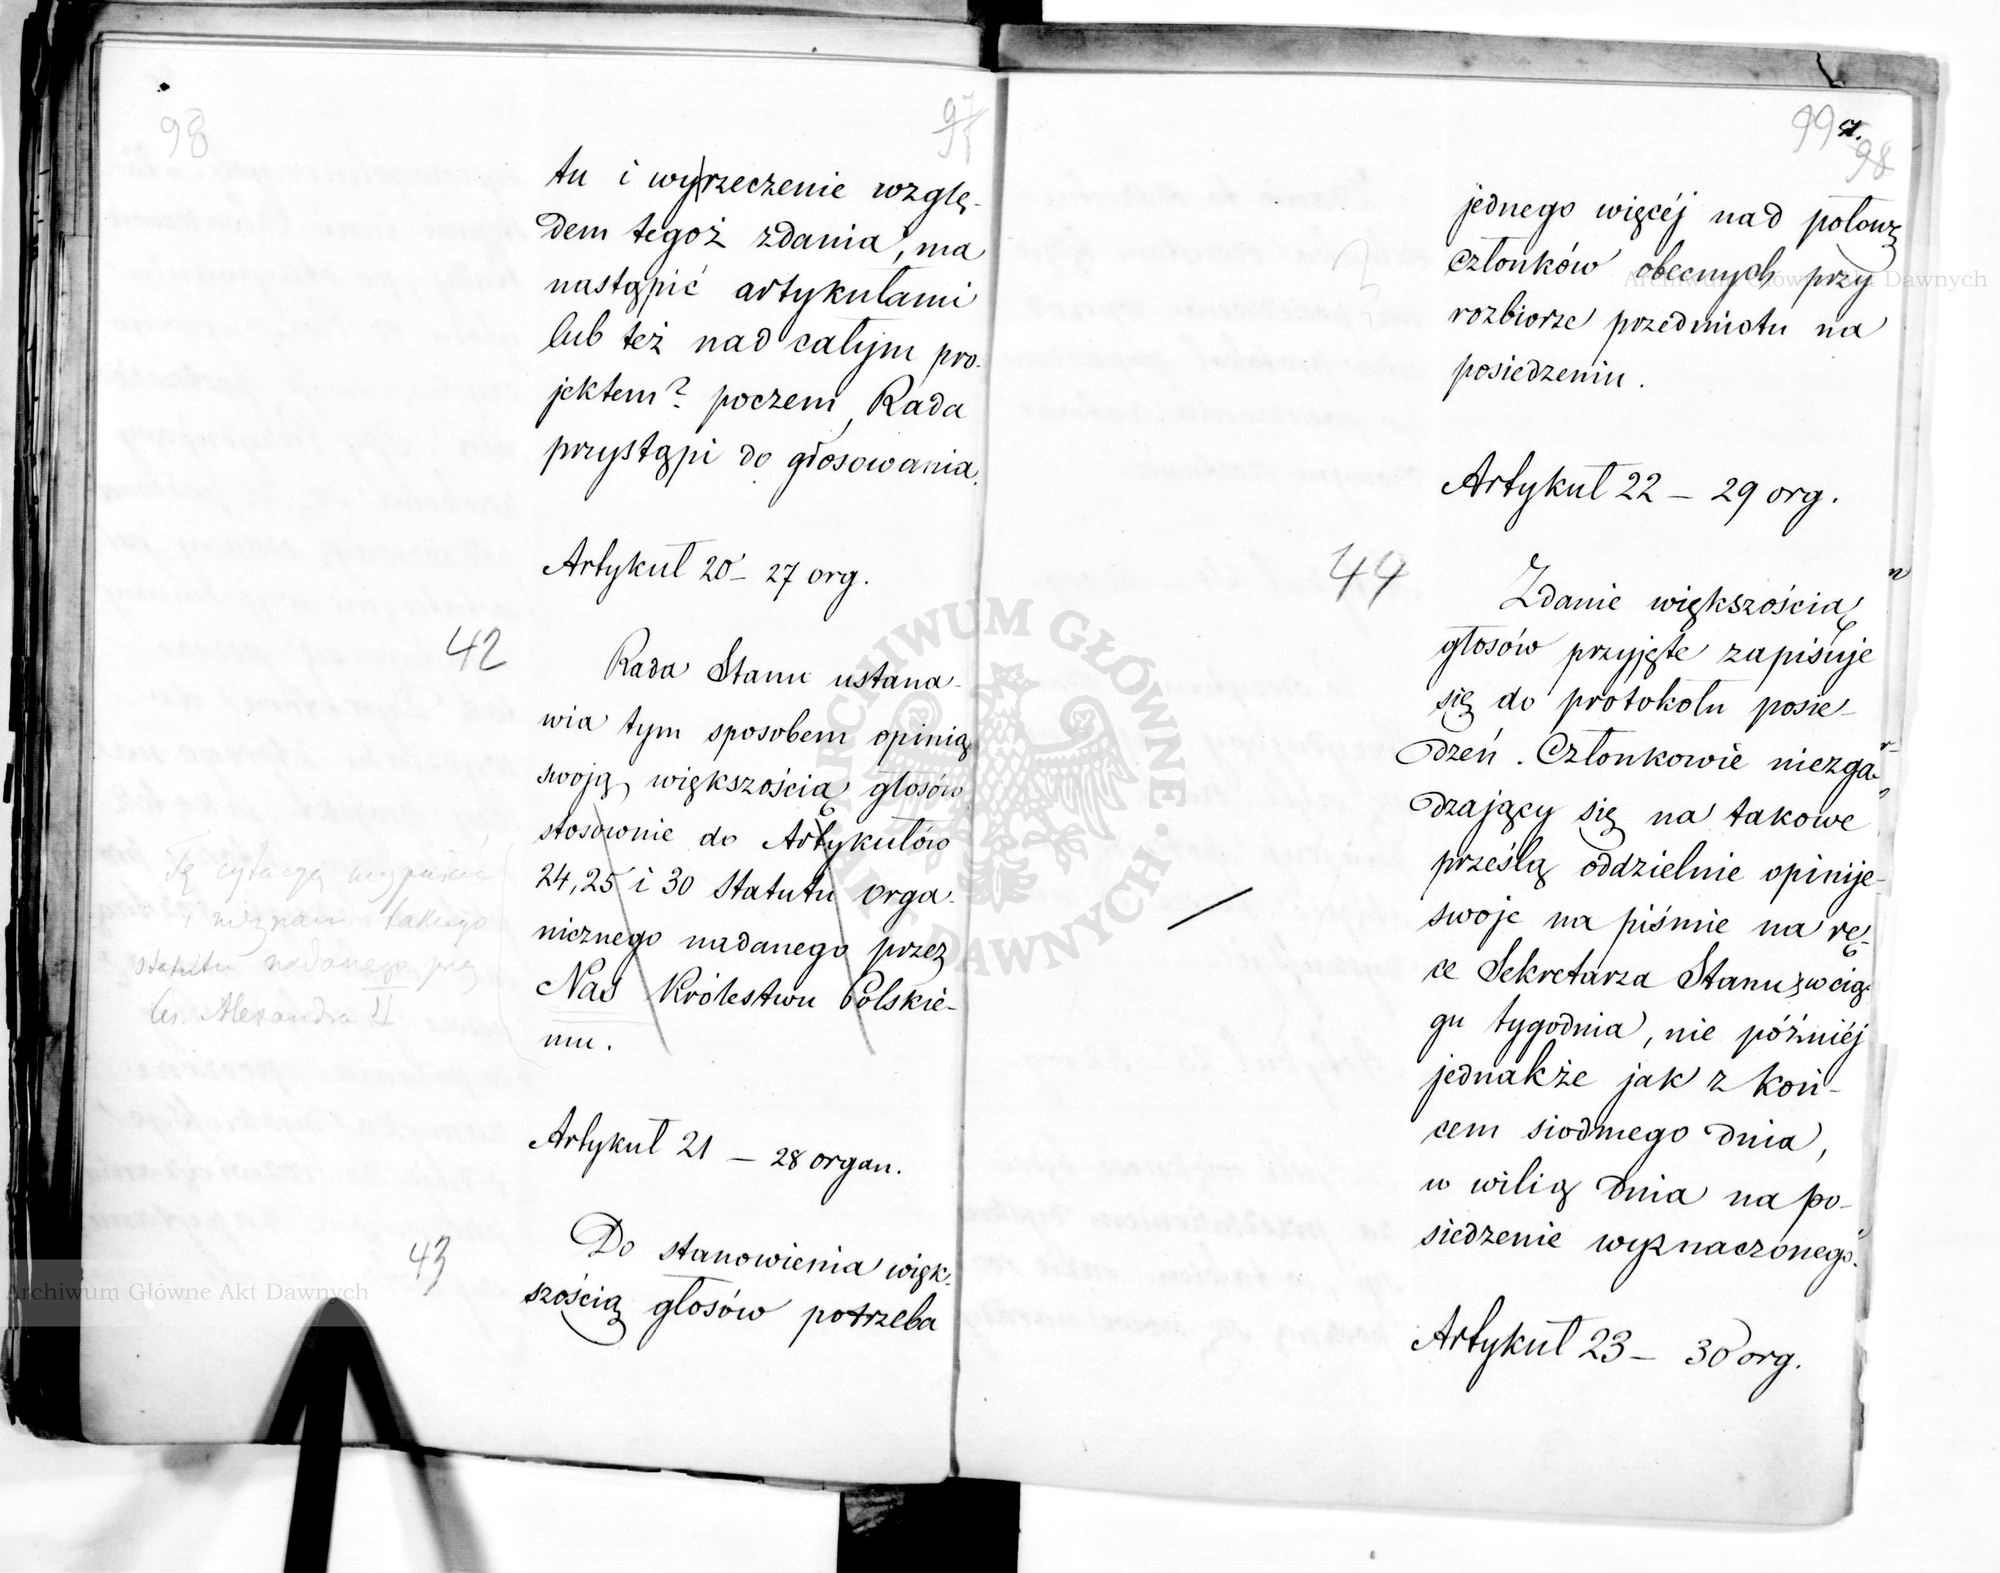 98
97
tu i wyrzeczenie wzglę-
dem tegoż zdania, ma
nastąpić artykułami
lub też nad całym pro-
jektem? poczem, Rada
przystąpi do głosowania.
Artykuł 20 – 27 org.
42
Rada Stanu ustana-
wia tym sposobem opinią
swoją, większością głosów
stosownie do Artykułów
24, 25 i 30 Statutu orga-
nicznego nadanego przez
Nas Królestwu Polskie-
mu.
Tę cytacyą wypuścić
nieznam takiego
statutu nadanego przez
Ces. Alexandra II
Artykuł 21 – 28 organ.
43
Do stanowienia więk-
szością głosów potrzeba
99
98
jednego więcéj nad połowę
Członków obecnych przy
rozbiorze przedmiotu na
posiedzeniu.
Artykuł 22 – 29 org.
44
Zdanie większością
głosów przyjęte zapisuje
się do protokołu posie-
dzeń. Członkowie niezga-
dzający się na takowe
prześlą oddzielnie opinije
swoje na piśmie na rę-
ce Sekretarza Stanu w cią-
gu tygodnia, nie późniéj
jednakże jak z koń-
cem siodmego dnia,
w wilią dnia na po-
siedzenie wyznaczonego.
Artykuł 23 – 30 org.
ARCHIWUM GŁÓWNE AKT DAWNYCH
Archiwum Główne Akt Dawnych
Archiwum Główne Akt Dawnych